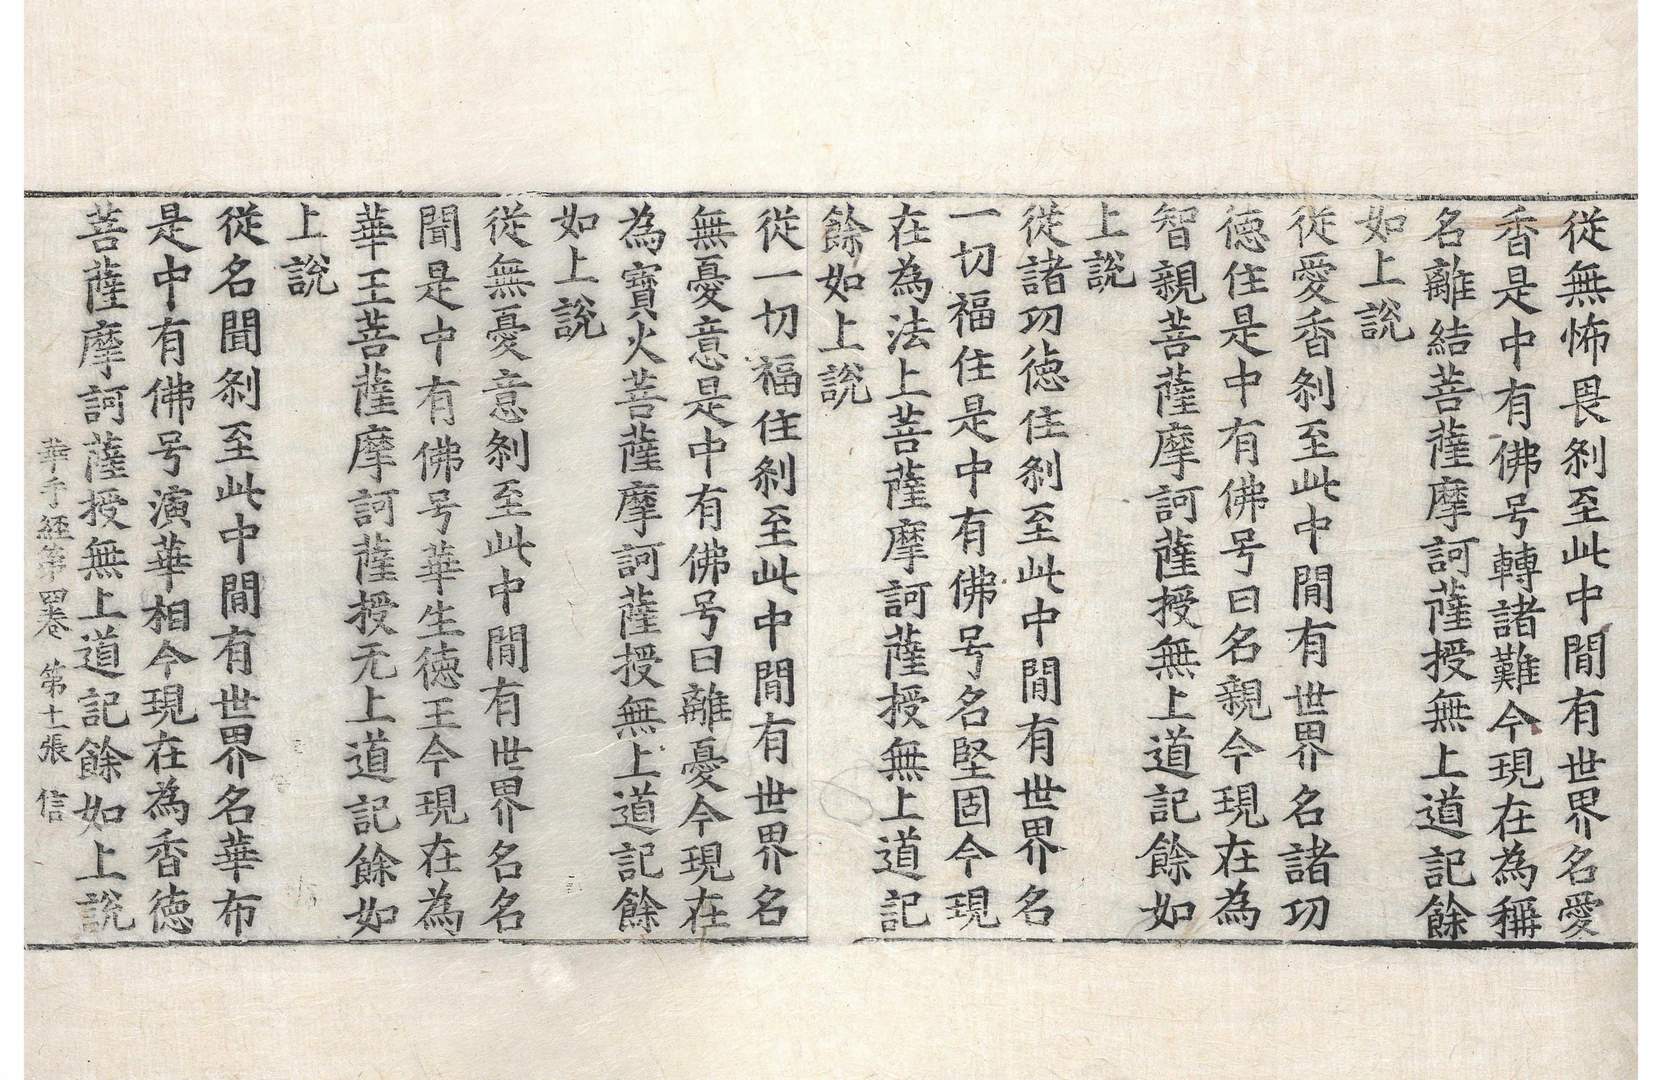 從無怖畏刹至此中閒有世界名愛
香是中有佛号轉諸難今現在為稱
名離結菩薩摩訶薩授無上道記餘
如上說
從愛香刹至此中閒有世界名諸功
德住是中有佛号曰名親今現在為
智親菩薩摩訶薩授無上道記餘如
上說
從諸功德住刹至此中閒有世界名
一切福住是中有佛号名堅固今現
在為法上菩薩摩訶薩授無上道記
餘如上說
從一切福住刹至此中閒有世界名
無憂意是中有佛号曰離憂今現在
為寶火菩薩摩訶薩授無上道記餘
如上說
從無憂意刹至此中閒有世界名名
聞是中有佛号華生德王今現在為
華王菩薩摩訶薩授无上道記餘如
上說
從名聞刹至此中閒有世界名華布
是中有佛号演華相今現在為香德
菩薩摩訶薩授無上道記餘如上說
華手經第四卷 第十一張 信